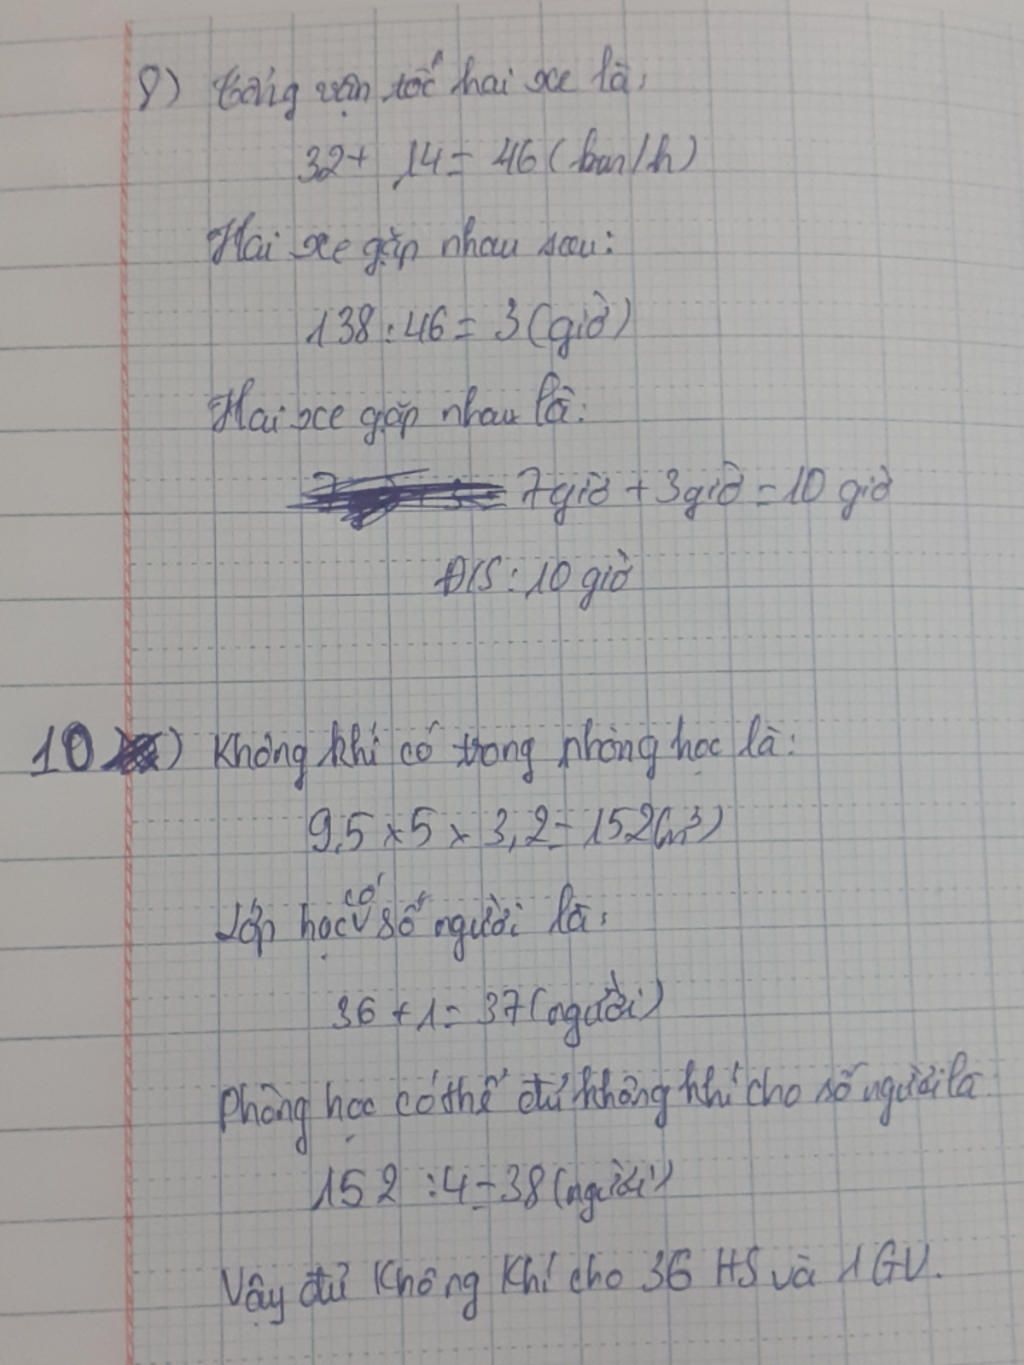 9) Tổng vận tốc hai xe là:
32+ 14= 46 (km/h)
Hai xe gặp nhau sau:
138:46= 3 (giờ)
Hai xe gặp nhau là:
7giờ + 3giờ = 10 giờ
Đ/S: 10 giờ
10) Không khí có trong phòng học là:
9,5 x 5 x 3,2= 152(m³)
Lớp học có số người là:
36 + 1= 37 (người)
Phòng học có thể đủ không khí cho số người là
152 :4=38 (người)
Vậy đủ không khí cho 36 HS và 1GV.